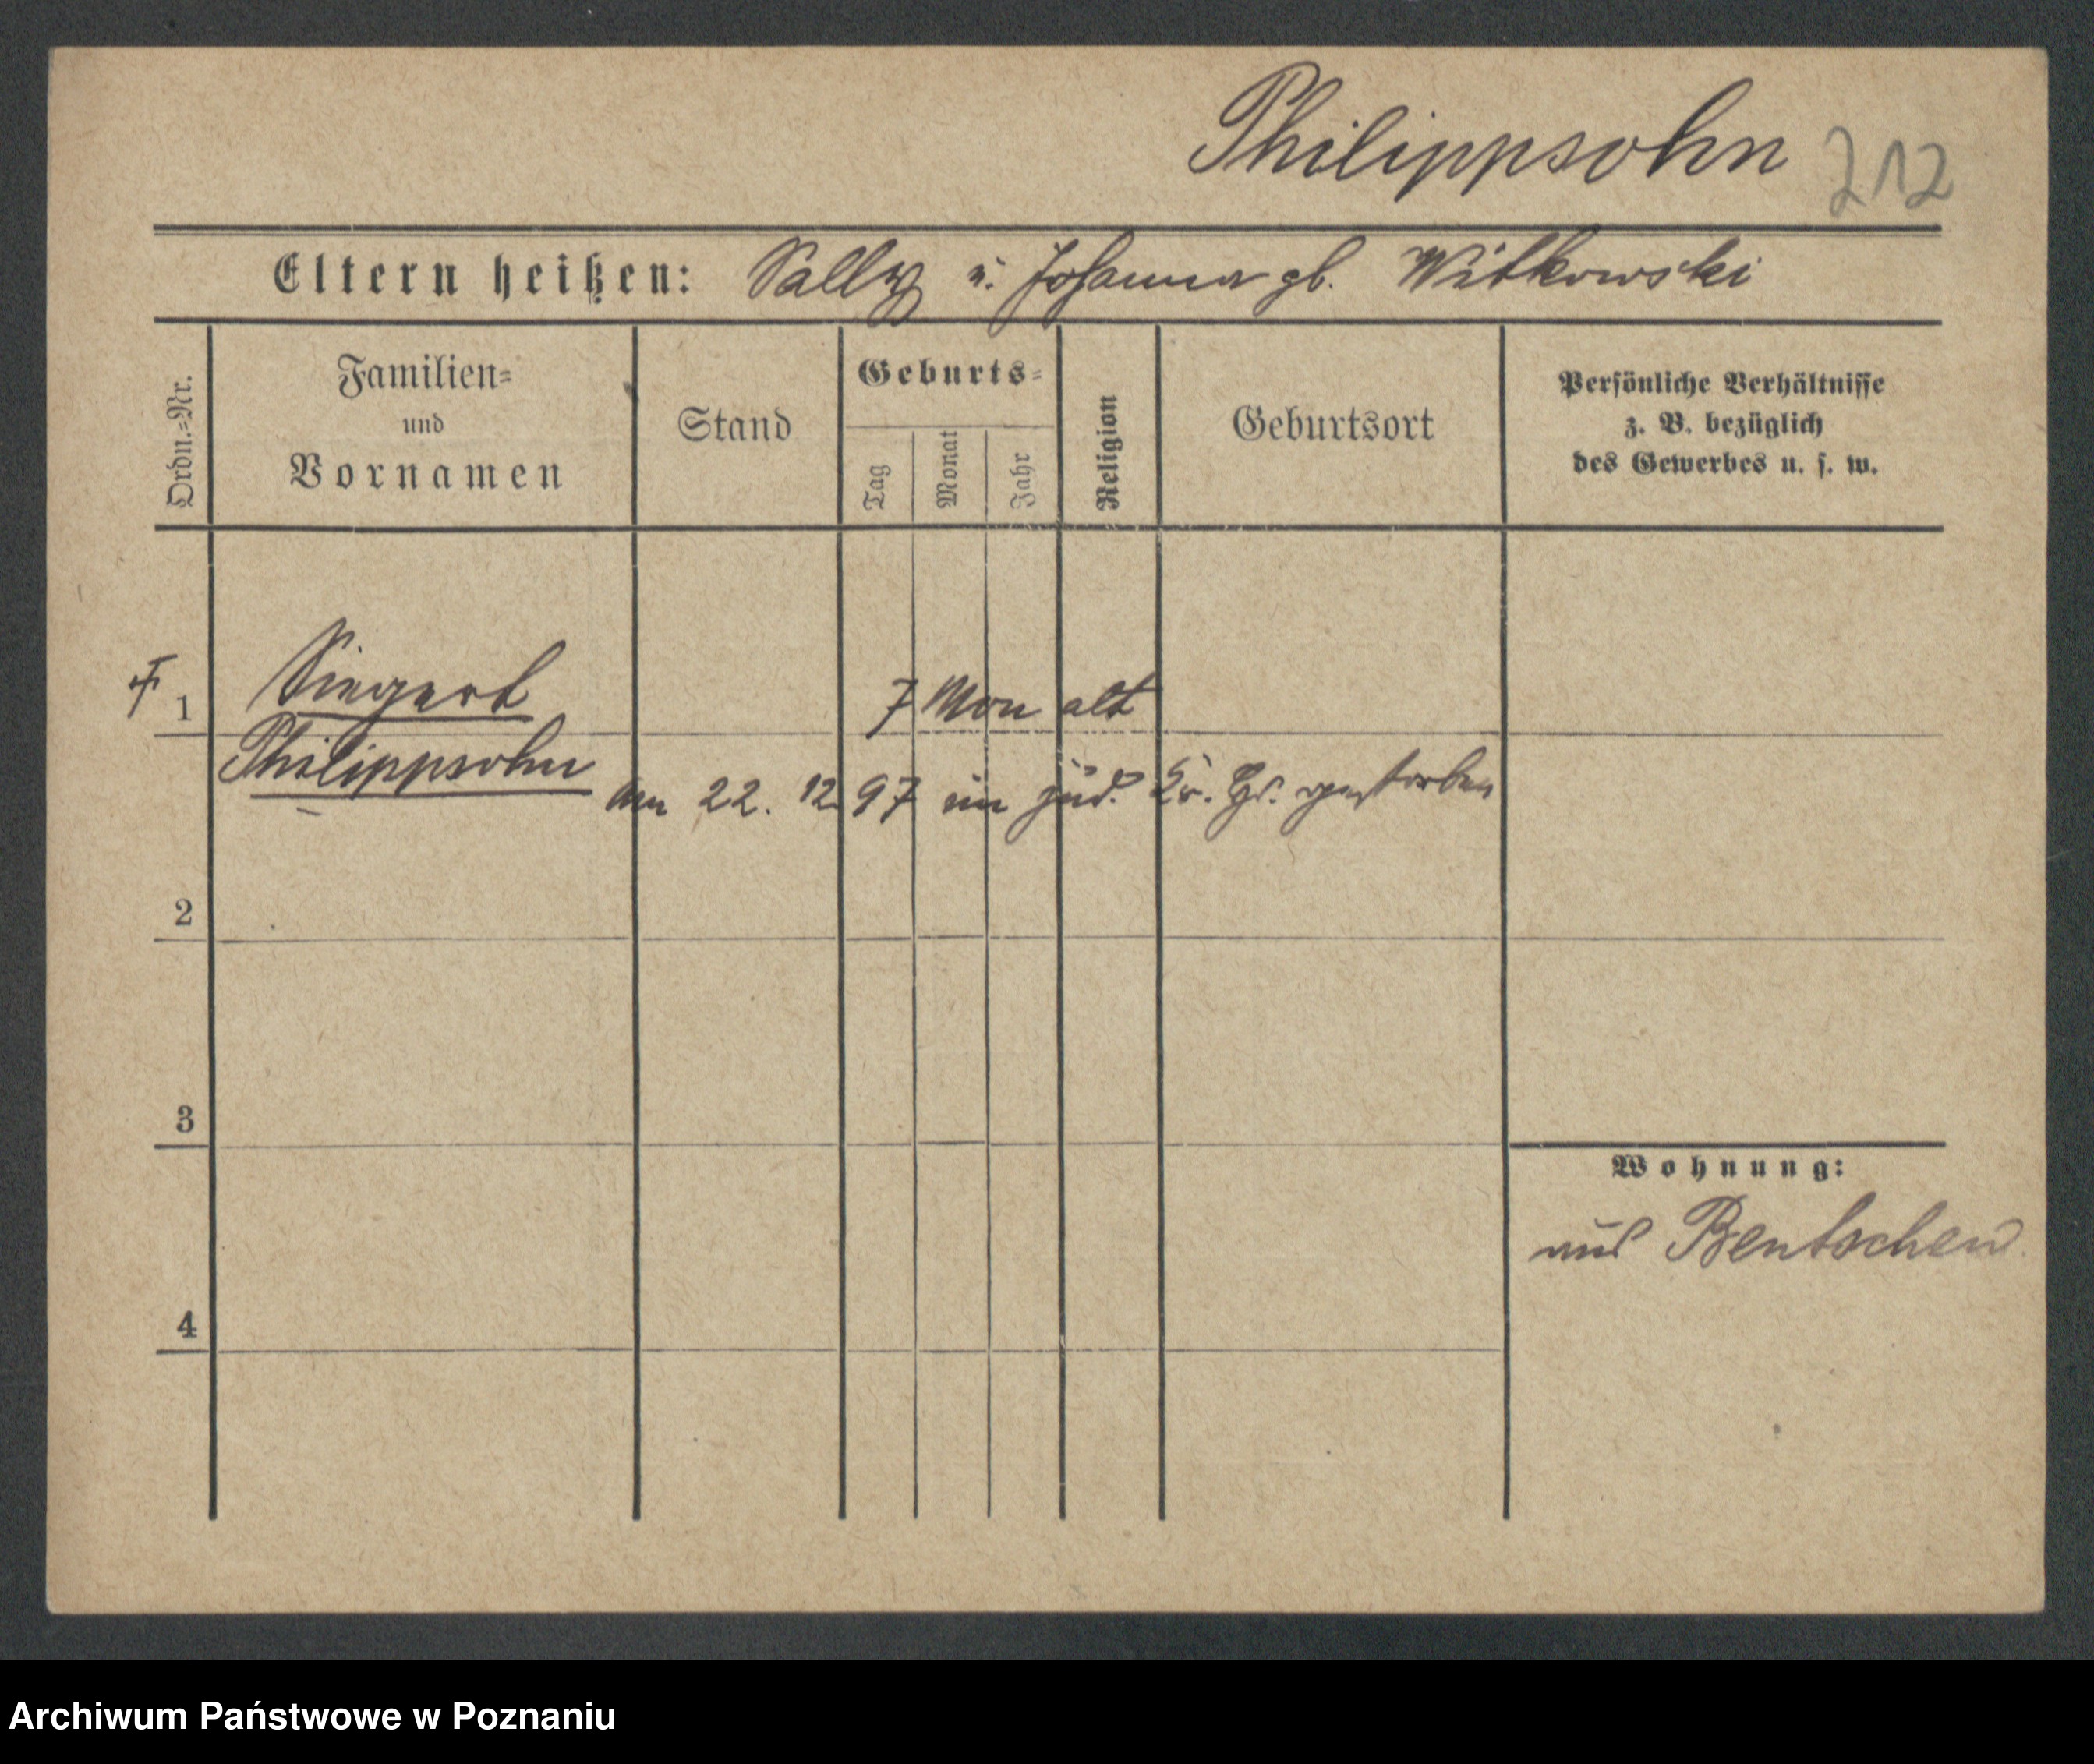 Philippsohn 212
Eltern heißen: Sally u. Johanna gb. Witkowski
Ordn.=Nr.
Familien=
und
Vornamen
Stand
Geburts=
Tag
Monat
Jahr
Religion
Geburtsort
Persönliche Verhältnisse
z. B. bezüglich
des Gewerbes u. s. w.
1 Siegert 7 Mon alt
Philippsohn am 22. 12. 97 im jüd. gestorben
2
3
Wohnung:
aus Bentschen
4
Archiwum Państwowe w Poznaniu